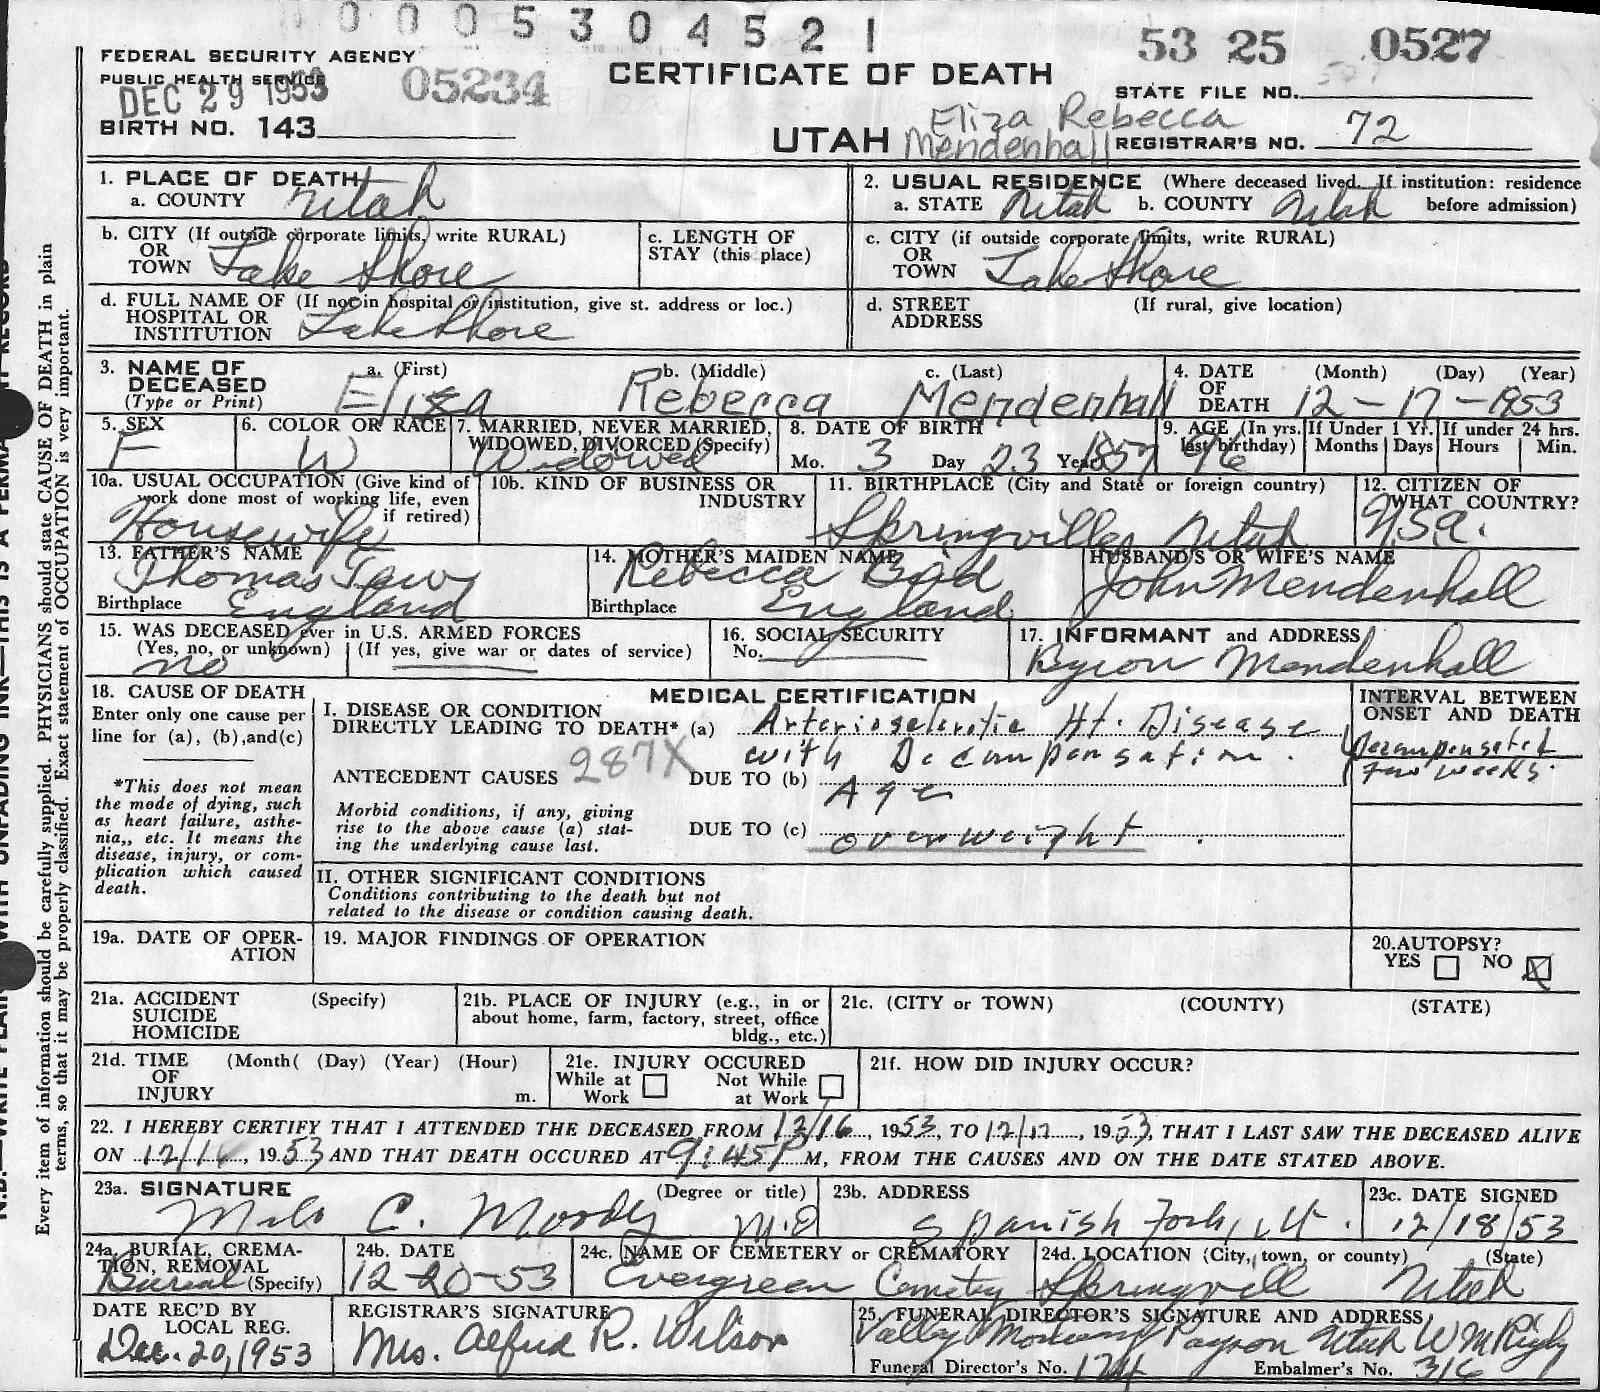 0 0 0 5 3 0 4 5 2 1
53 25 0527
FEDERAL SECURITY AGENCY
PUBLIC HEALTH SERVICE
DEC 29 1953
05234
CERTIFICATE OF DEATH
STATE FILE NO.
BIRTH NO. 143
UTAH
Eliza Rebecca
Mendenhall
REGISTRAR'S NO. 72
1. PLACE OF DEATH
a. COUNTY Utah
2. USUAL RESIDENCE (Where deceased lived. If institution: residence
a. STATE Utah b. COUNTY Utah before admission)
b. CITY (If outside corporate limits, write RURAL)
OR
TOWN Lake Shore
c. LENGTH OF
STAY (this place)
c. CITY (if outside corporate limits, write RURAL)
OR
TOWN Lake Shore
d. FULL NAME OF (If not in hospital or institution, give st. address or loc.)
HOSPITAL OR
INSTITUTION Lake Shore
d. STREET (If rural, give location)
ADDRESS
3. NAME OF
DECEASED
(Type or Print)
a. (First) b. (Middle) c. (Last)
Eliza Rebecca Mendenhall
4. DATE (Month) (Day) (Year)
OF
DEATH 12-17-1953
5. SEX
F
6. COLOR OR RACE
W
7. MARRIED, NEVER MARRIED,
WIDOWED, DIVORCED (Specify)
Widowed
8. DATE OF BIRTH
Mo. 3 Day 23 Year 1857
9. AGE (In yrs.
last birthday) 96
If Under 1 Yr.
Months Days
If under 24 hrs.
Hours Min.
10a. USUAL OCCUPATION (Give kind of
work done most of working life, even
if retired)
Housewife
10b. KIND OF BUSINESS OR
INDUSTRY
11. BIRTHPLACE (City and State or foreign country)
Springville, Utah
12. CITIZEN OF
WHAT COUNTRY?
USA.
13. FATHER'S NAME
Thomas
Birthplace England
14. MOTHER'S MAIDEN NAME
Rebecca Bird
Birthplace England
HUSBAND'S OR WIFE'S NAME
John Mendenhall
15. WAS DECEASED ever in U.S. ARMED FORCES
(Yes, no, or unknown) (If yes, give war or dates of service)
no
16. SOCIAL SECURITY
No.
17. INFORMANT and ADDRESS
Byron Mendenhall
18. CAUSE OF DEATH
Enter only one cause per
line for (a), (b), and (c)
*This does not mean
the mode of dying, such
as heart failure, asthe-
nia,, etc. It means the
disease, injury, or com-
plication which caused
death.
MEDICAL CERTIFICATION
I. DISEASE OR CONDITION
DIRECTLY LEADING TO DEATH* (a) Arteriosclerotic Ht. Disease
with Decompensation.
ANTECEDENT CAUSES 287X
DUE TO (b) Age
Morbid conditions, if any, giving
rise to the above cause (a) stat-
ing the underlying cause last.
DUE TO (c) overweight.
INTERVAL BETWEEN
ONSET AND DEATH
Decompensated
two weeks.
II. OTHER SIGNIFICANT CONDITIONS
Conditions contributing to the death but not
related to the disease or condition causing death.
19a. DATE OF OPER-
ATION
19. MAJOR FINDINGS OF OPERATION
20. AUTOPSY?
YES NO X
21a. ACCIDENT (Specify)
SUICIDE
HOMICIDE
21b. PLACE OF INJURY (e.g., in or
about home, farm, factory, street, office
bldg., etc.)
21c. (CITY or TOWN) (COUNTY) (STATE)
21d. TIME (Month( (Day) (Year) (Hour)
OF
INJURY m.
21e. INJURY OCCURED
While at Not While
Work at Work
21f. HOW DID INJURY OCCUR?
22. I HEREBY CERTIFY THAT I ATTENDED THE DECEASED FROM 12/16, 1953, TO 12/17, 1953, THAT I LAST SAW THE DECEASED ALIVE
ON 12/16, 1953 AND THAT DEATH OCCURED AT 9:45P M, FROM THE CAUSES AND ON THE DATE STATED ABOVE.
23a. SIGNATURE (Degree or title)
Milo C. Moody M.D
23b. ADDRESS
Spanish Fork, Ut.
23c. DATE SIGNED
12/18/53
24a. BURIAL, CREMA-
TION, REMOVAL
Burial (Specify)
24b. DATE
12-20-53
24c. NAME OF CEMETERY or CREMATORY
Evergreen Cemetry
24d. LOCATION (City, town, or county) (State)
Springvill Utah
DATE REC'D BY
LOCAL REG.
Dec. 20, 1953
REGISTRAR'S SIGNATURE
Mrs. Alfred R. Wilson
25. FUNERAL DIRECTOR'S SIGNATURE AND ADDRESS
Valley Mortuary Payson Utah W M Rigby
Funeral Director's No. 174 Embalmer's No. 316
Every item of information should be carefully supplied. PHYSICIANS should state CAUSE OF DEATH in plain
terms, so that it may be properly classified. Exact statement of OCCUPATION is very important.